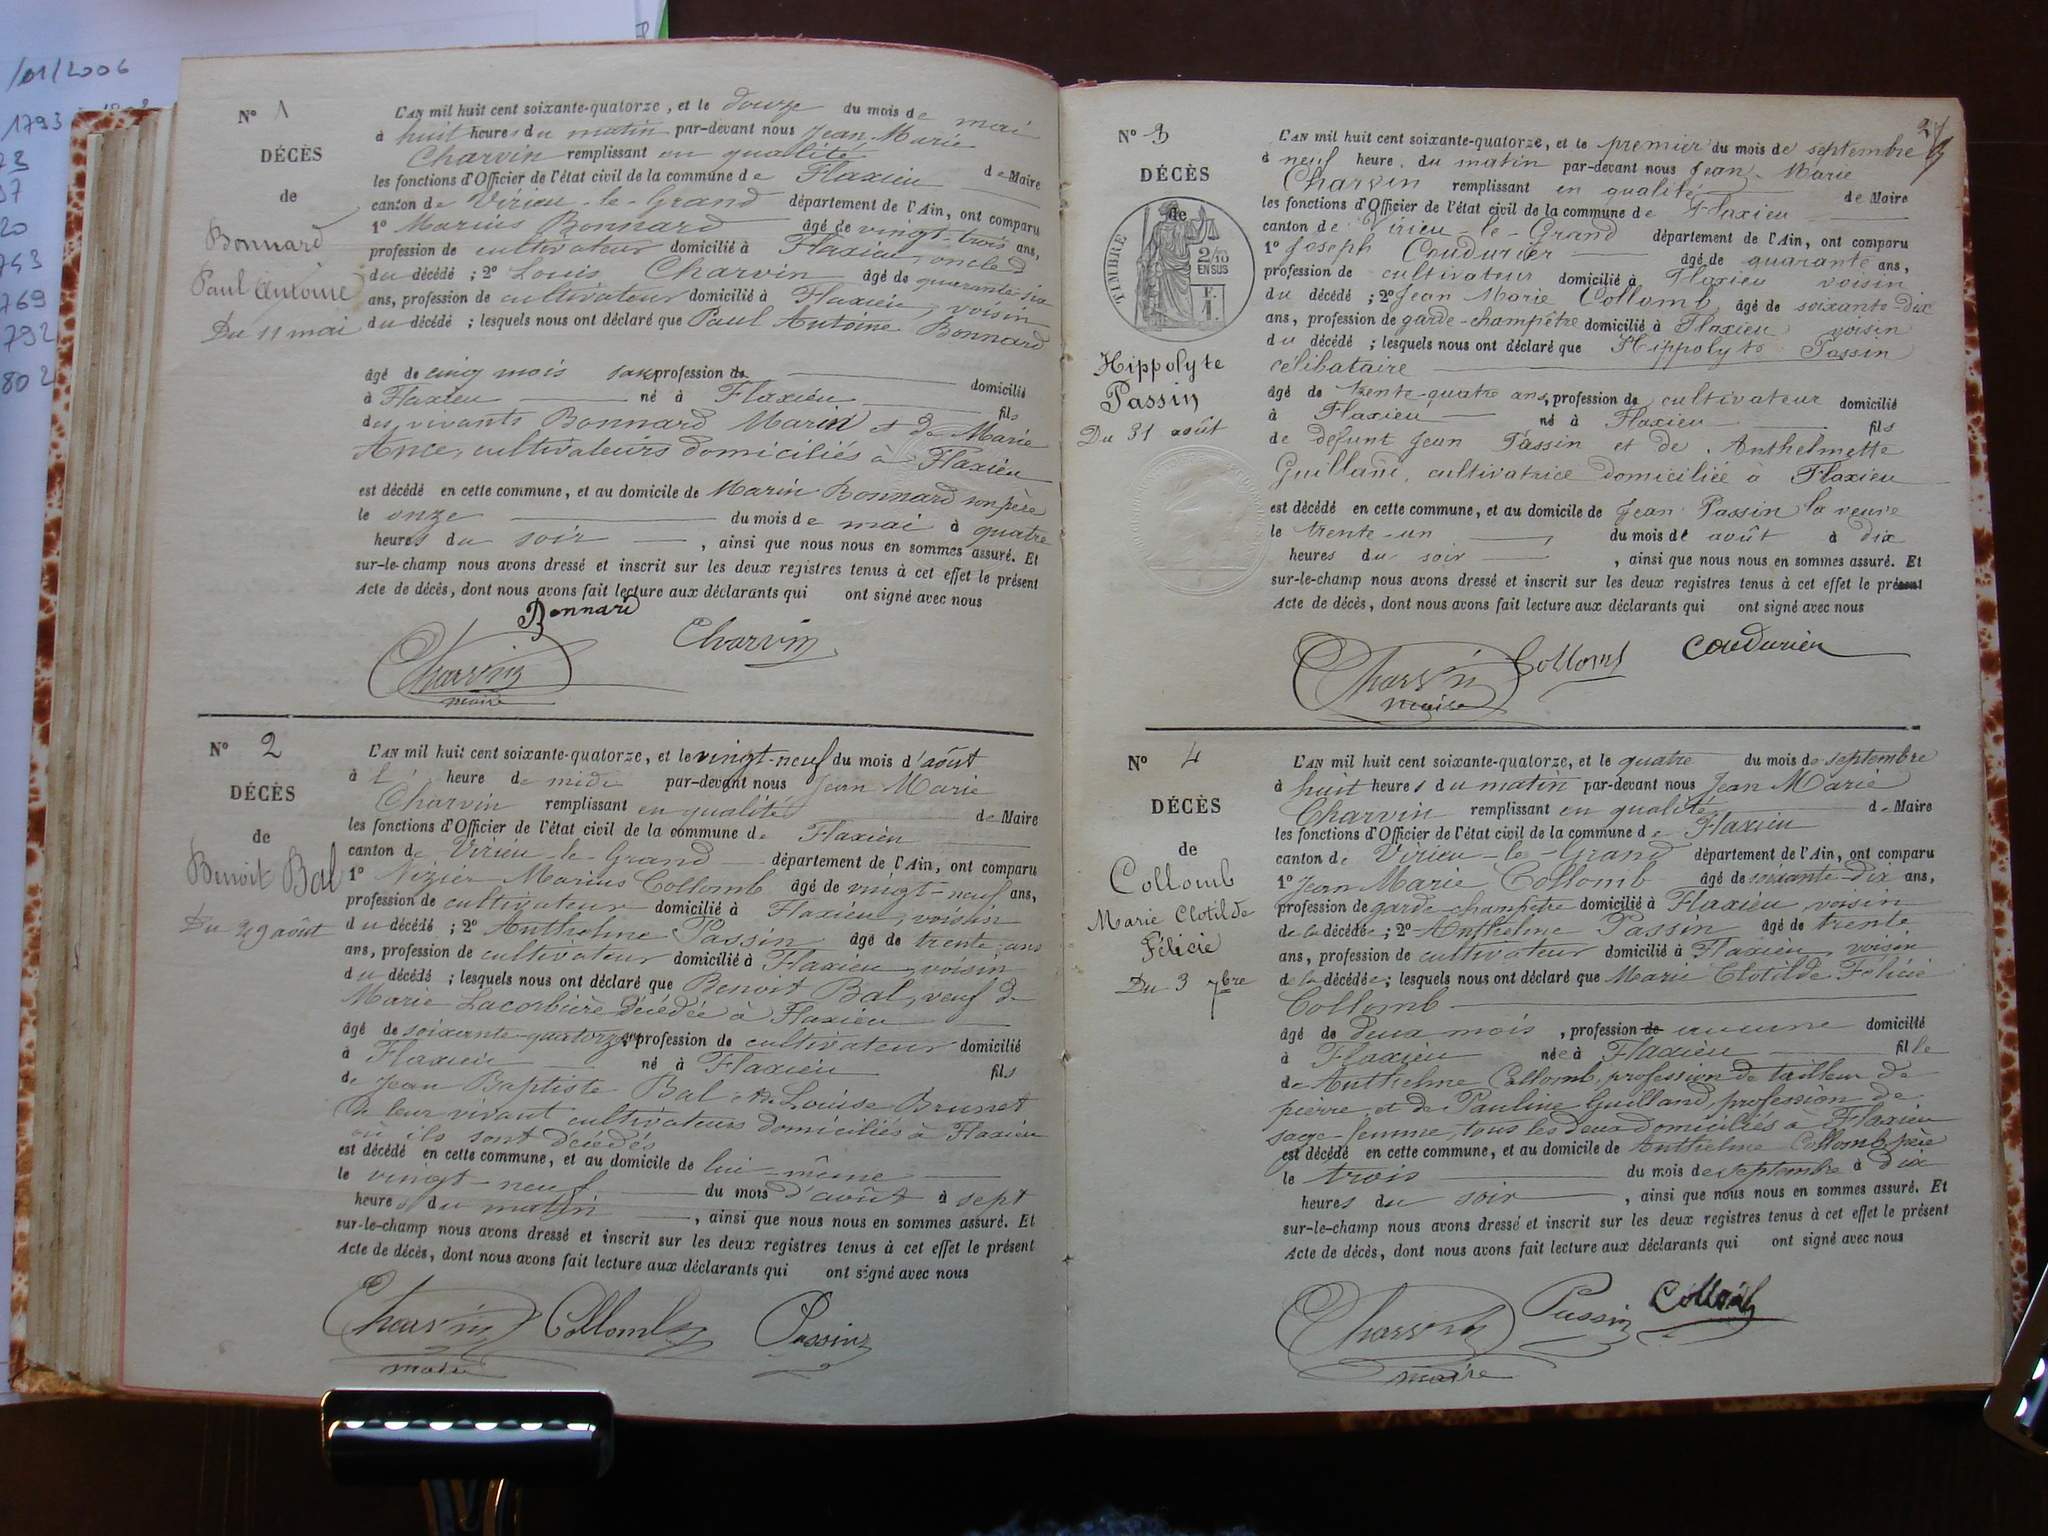 /01/2006
1793
73
97
20
743
769
792
802
N° 1
DÉCÈS
de
Bonnard
Paul Antoine
Du 11 mai
L'AN mil huit cent soixante-quatorze, et le douze du mois de mai
à huit heures du matin par-devant nous Jean Marie
Charvin remplissant en qualité de Maire
les fonctions d'Officier de l'état civil de la commune de Flaxieu
canton de Virieu-le-Grand département de l'Ain, ont comparu
1° Marius Bonnard âgé de vingt-trois ans,
profession de cultivateur domicilié à Flaxieu, oncle
du décédé ; 2° Louis Charvin âgé de quarante-six
ans, profession de cultivateur domicilié à Flaxieu, voisin
du décédé ; lesquels nous ont déclaré que Paul Antoine Bonnard
âgé de cinq mois sans profession de domicilié
à Flaxieu né à Flaxieu fils
des vivants Bonnard Marin et de Marie
Ance, cultivateurs domiciliés à Flaxieu
est décédé en cette commune, et au domicile de Marin Bonnard son père
le onze du mois de mai à quatre
heures du soir , ainsi que nous nous en sommes assuré. Et
sur-le-champ nous avons dressé et inscrit sur les deux registres tenus à cet effet le présent
Acte de décès, dont nous avons fait lecture aux déclarants qui ont signé avec nous
Bonnard
Charvin
Charvin
maire
N° 2
DÉCÈS
de
Benoit Bal
Du 29 août
L'AN mil huit cent soixante-quatorze, et le vingt-neuf du mois d'août
à l' heure de midi par-devant nous Jean Marie
Charvin remplissant en qualité de Maire
les fonctions d'Officier de l'état civil de la commune de Flaxieu
canton de Virieu-le-Grand département de l'Ain, ont comparu
1° Nizier Marius Collomb âgé de vingt-neuf ans,
profession de cultivateur domicilié à Flaxieu, voisin
du décédé ; 2° Anthelme Passin âgé de trente ans
ans, profession de cultivateur domicilié à Flaxieu, voisin
du décédé ; lesquels nous ont déclaré que Benoit Bal, veuf de
Marie Lacorbière décédée à Flaxieu
âgé de soixante-quatorze ans, profession de cultivateur domicilié
à Flaxieu né à Flaxieu fils
de Jean Baptiste Bal et de Louise Brunet
à leur vivant cultivateurs domiciliés à Flaxieu
où ils sont décédés
est décédé en cette commune, et au domicile de lui-même
le vingt-neuf du mois d'août à sept
heures du matin , ainsi que nous nous en sommes assuré. Et
sur-le-champ nous avons dressé et inscrit sur les deux registres tenus à cet effet le présent
Acte de décès, dont nous avons fait lecture aux déclarants qui ont signé avec nous
Charvin Collomb Passin
maire
2
N° 3
DÉCÈS
de
TIMBRE
2/10
EN SUS
F.
1.
Hippolyte
Passin
Du 31 août
L'AN mil huit cent soixante-quatorze, et le premier du mois de septembre
à neuf heure du matin par-devant nous Jean-Marie
Charvin remplissant en qualité de Maire
les fonctions d'Officier de l'état civil de la commune de Flaxieu
canton de Virieu-le-Grand département de l'Ain, ont comparu
1° Joseph Coudurier âgé de quarante ans,
profession de cultivateur domicilié à Flaxieu voisin
du décédé ; 2° Jean Marie Collomb, âgé de soixante-dix
ans, profession de garde-champêtre domicilié à Flaxieu voisin
du décédé ; lesquels nous ont déclaré que Hippolyte Passin
célibataire
âgé de trente-quatre ans, profession de cultivateur domicilié
à Flaxieu né à Flaxieu fils
de défunt Jean Passin et de Anthelmette
Guilland, cultivatrice domiciliée à Flaxieu
est décédé en cette commune, et au domicile de Jean Passin la veuve
le trente-un du mois de août à dix
heures du soir , ainsi que nous nous en sommes assuré. Et
sur-le-champ nous avons dressé et inscrit sur les deux registres tenus à cet effet le présent
Acte de décès, dont nous avons fait lecture aux déclarants qui ont signé avec nous
Charvin Collomb Coudurier
maire
N° 4
DÉCÈS
de
Collomb
Marie Clotilde
Félicie
Du 3 7bre
L'AN mil huit cent soixante-quatorze, et le quatre du mois de septembre
à huit heures du matin par-devant nous Jean Marie
Charvin remplissant en qualité de Maire
les fonctions d'Officier de l'état civil de la commune de Flaxieu
canton de Virieu-le-Grand département de l'Ain, ont comparu
1° Jean Marie Collomb âgé de soixante-dix ans,
profession de garde-champêtre domicilié à Flaxieu, voisin
de la décédée ; 2° Anthelme Passin âgé de trente
ans, profession de cultivateur domicilié à Flaxieu, voisin
de la décédée ; lesquels nous ont déclaré que Marie Clotilde Félicie
Collomb
âgé de deux mois , profession de aucune domicilié
à Flaxieu née à Flaxieu fille
de Anthelme Collomb, profession de tailleur de
pierre et de Pauline Guilland, profession de
sage-femme, tous les deux domiciliés à Flaxieu
est décédé en cette commune, et au domicile de Anthelme Collomb père
le trois du mois de septembre à dix
heures du soir , ainsi que nous nous en sommes assuré. Et
sur-le-champ nous avons dressé et inscrit sur les deux registres tenus à cet effet le présent
Acte de décès, dont nous avons fait lecture aux déclarants qui ont signé avec nous
Charvin Passin Collomb
maire